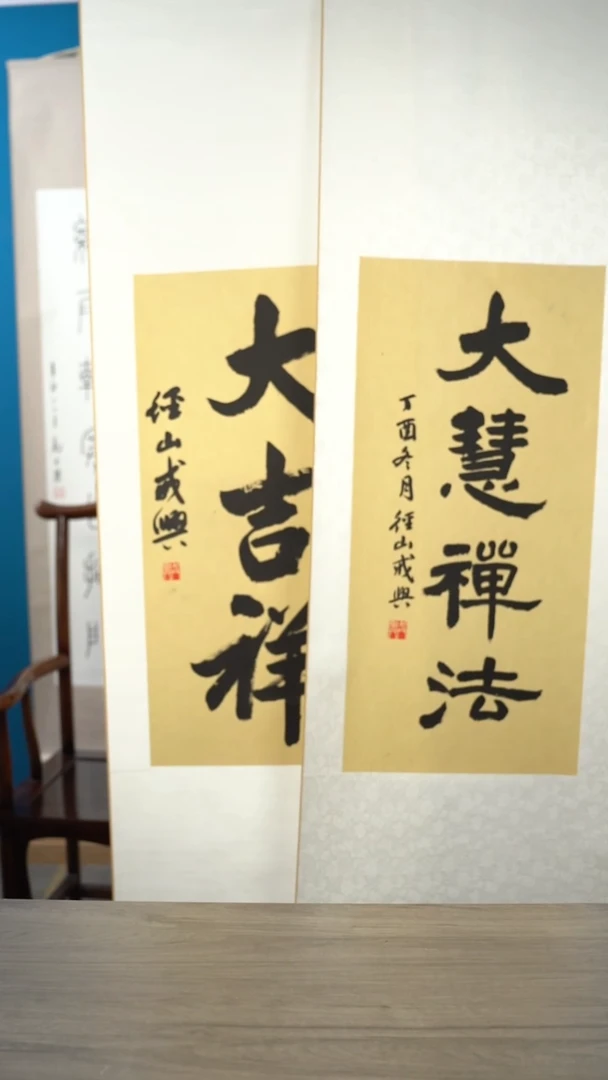 大慧禪法
丁酉冬月徑山戒興
大吉祥
徑山戒興